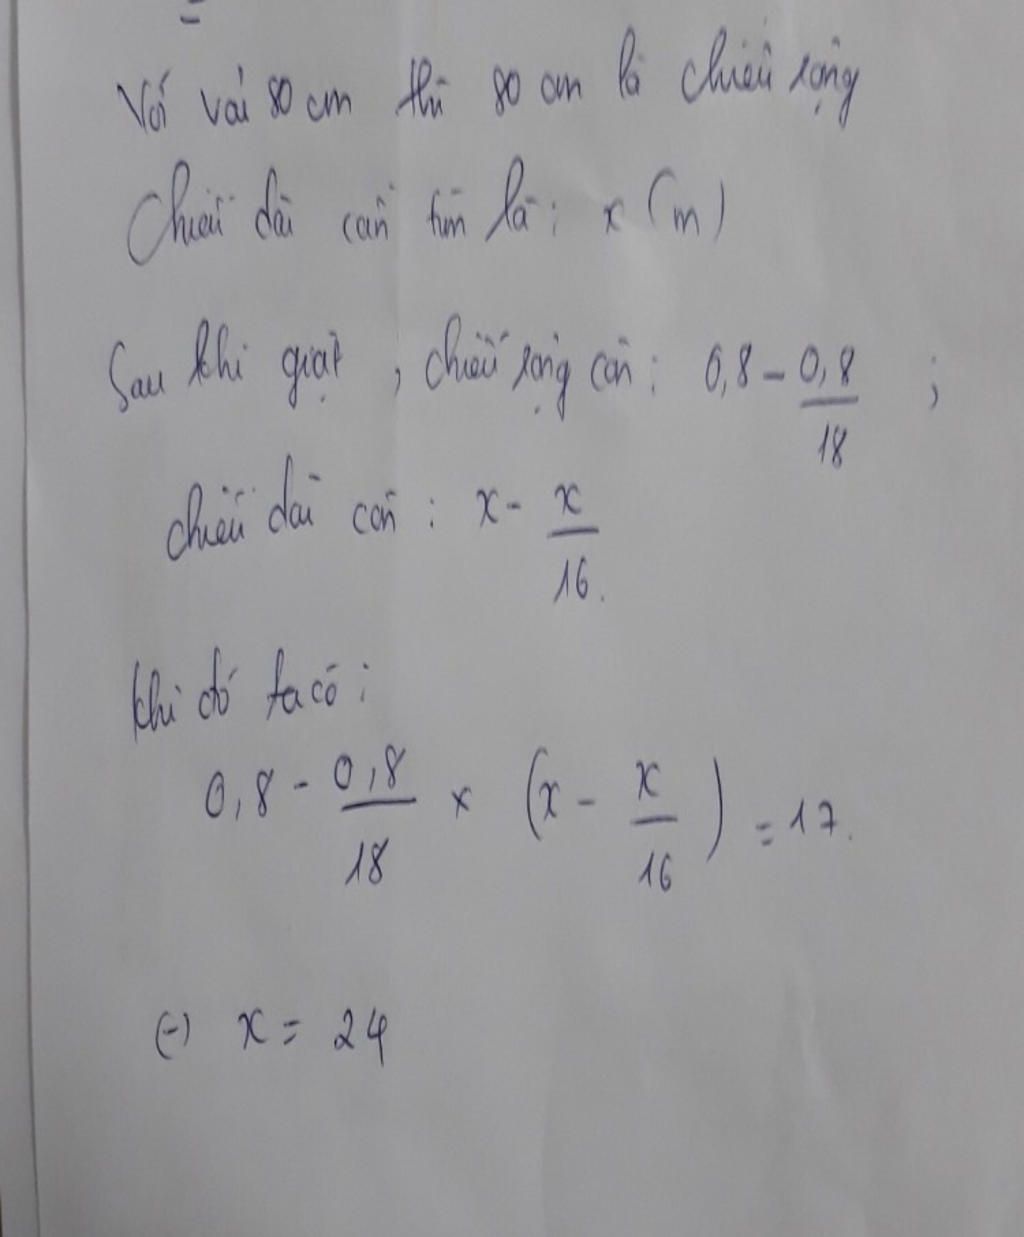 Với vải 80 cm thì 80 cm là chiều rộng
Chiều dài cần tìm là: x (m)
Sau khi giặt, chiều rộng còn: 0,8 - 0,8/18 ;
chiều dài còn: x - x/16.
Khi đó ta có:
0,8 - 0,8/18 × (x - x/16) = 17.
(-) x = 24